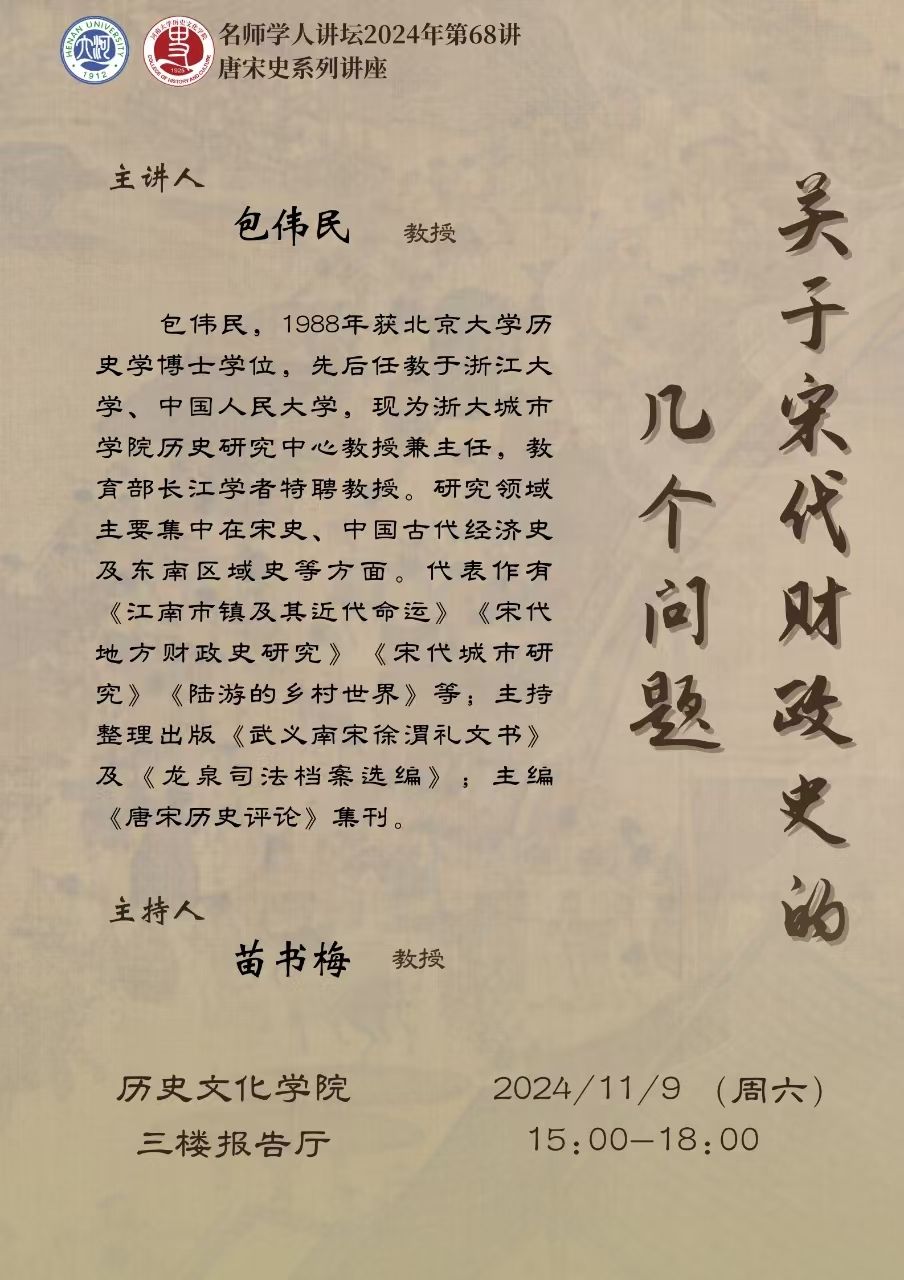 HENAN UNIVERSITY
1912
河南大学历史文化学院
COLLEGE OF HISTORY AND CULTURE
1925
名师学人讲坛2024年第68讲
唐宋史系列讲座
关于宋代财政史的
几个问题
主讲人
包伟民 教授
包伟民，1988年获北京大学历
史学博士学位，先后任教于浙江大
学、中国人民大学，现为浙大城市
学院历史研究中心教授兼主任，教
育部长江学者特聘教授。研究领域
主要集中在宋史、中国古代经济史
及东南区域史等方面。代表作有
《江南市镇及其近代命运》《宋代
地方财政史研究》《宋代城市研
究》《陆游的乡村世界》等；主持
整理出版《武义南宋徐渭礼文书》
及《龙泉司法档案选编》；主编
《唐宋历史评论》集刊。
主持人
苗书梅 教授
历史文化学院
三楼报告厅
2024/11/9 （周六）
15:00-18:00